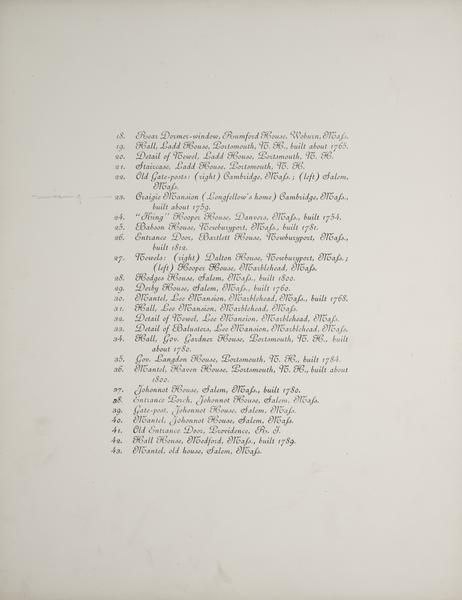 18. Rear Dormer-window, Rumford House, Woburn, Maſs.
19. Hall, Ladd House, Portsmouth, N. H., built about 1765.
20. Detail of Newel, Ladd House, Portsmouth, N. H.
21. Staircase, Ladd House, Portsmouth, N. H.
22. Old Gate-posts: (right) Cambridge, Maſs.; (left) Salem,
Maſs.
23. Craigie Mansion (Longfellow's home) Cambridge, Maſs.,
built about 1759.
24. "King" Hooper House, Danvers, Maſs., built 1754.
25. Babson House, Newburyport, Maſs., built 1781.
26. Entrance Door, Bartlett House, Newburyport, Maſs.,
built 1812.
27. Newels: (right) Dalton House, Newburyport, Maſs.;
(left) Hooper House, Marblehead, Maſs.
28. Hodges House, Salem, Maſs., built 1800.
29. Derby House, Salem, Maſs., built 1760.
30. Mantel, Lee Mansion, Marblehead, Maſs., built 1768.
31. Hall, Lee Mansion, Marblehead, Maſs.
32. Detail of Newel, Lee Mansion, Marblehead, Maſs.
33. Detail of Balusters, Lee Mansion, Marblehead, Maſs.
34. Hall, Gov. Gardner House, Portsmouth, N. H., built
about 1780.
35. Gov. Langdon House, Portsmouth, N. H., built 1784.
36. Mantel, Haven House, Portsmouth, N. H., built about
1800.
37. Johonnot House, Salem, Maſs., built 1780.
38. Entrance Porch, Johonnot House, Salem, Maſs.
39. Gate-post, Johonnot House, Salem, Maſs.
40. Mantel, Johonnot House, Salem, Maſs.
41. Old Entrance Door, Providence, R. I.
42. Hall House, Medford, Maſs., built 1789.
43. Mantel, old house, Salem, Maſs.